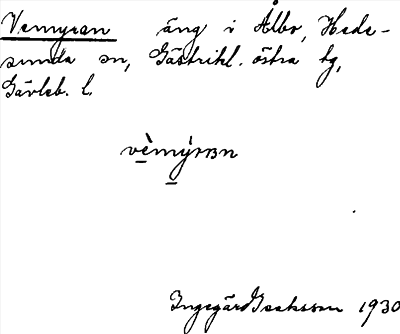 Vemyran äng i Ålbo, Hede-
sunda sn, Gästrikl. östra tg,
Gävleb. l.
vèmýrrɜn
Ingegärd Isaksson 1930